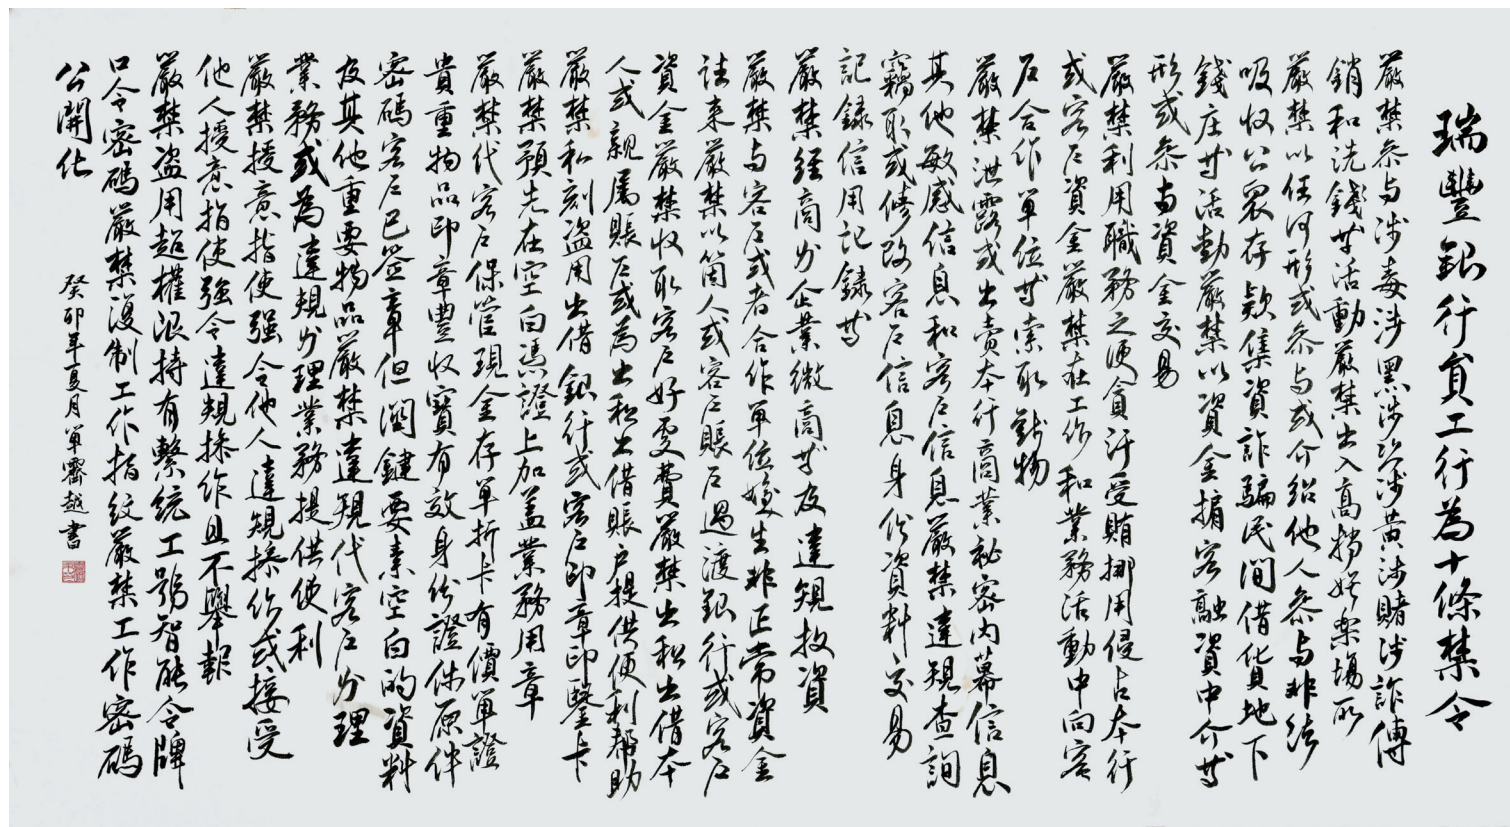 瑞豐銀行員工行為十條禁令
嚴禁參与涉毒涉黑涉恐涉黃涉賭涉詐傳
銷和洗錢等活動嚴禁出入高檔娛樂場所
嚴禁以任何形式參与或介紹他人參与非法
吸收公眾存款集資詐騙民間借貸地下
錢庄等活動嚴禁以資金掮客融資中介等
形式參与資金交易
嚴禁利用職務之便貪汙受賄挪用侵占本行
或客戶資金嚴禁在工作和業務活動中向客
戶合作單位等索取財物
嚴禁泄露或出賣本行商業秘密内幕信息
其他敏感信息和客戶信息嚴禁違規查詢
竊取或修改客戶信息身份資料交易
記録信用記録等
嚴禁經商办企業微商等及違規投資
嚴禁与客戶或者合作單位發生非正常資金
往来嚴禁以箇人或客戶賬戶過渡銀行或客戶
資金嚴禁收取客戶好處費嚴禁出租出借本
人或親屬賬戶或為出租出借賬户提供便利幫助
嚴禁私刻盜用出借銀行或客戶印章印鑒卡
嚴禁預先在空白憑證上加盖業務用章
嚴禁代客戶保管現金存單折卡有價單證
貴重物品印章豐收寶有效身份證件原件
密碼客戶已簽章但関鍵要素空白的資料
及其他重要物品嚴禁違規代客戶办理
業務或為違規办理業務提供便利
嚴禁授意指使强令他人違規操作或接受
他人授意指使强令違規操作且不舉報
嚴禁盜用超權限持有繫統工號智能令牌
口令密碼嚴禁復制工作指紋嚴禁工作密碼
公開化
癸卯年夏月單霽越書